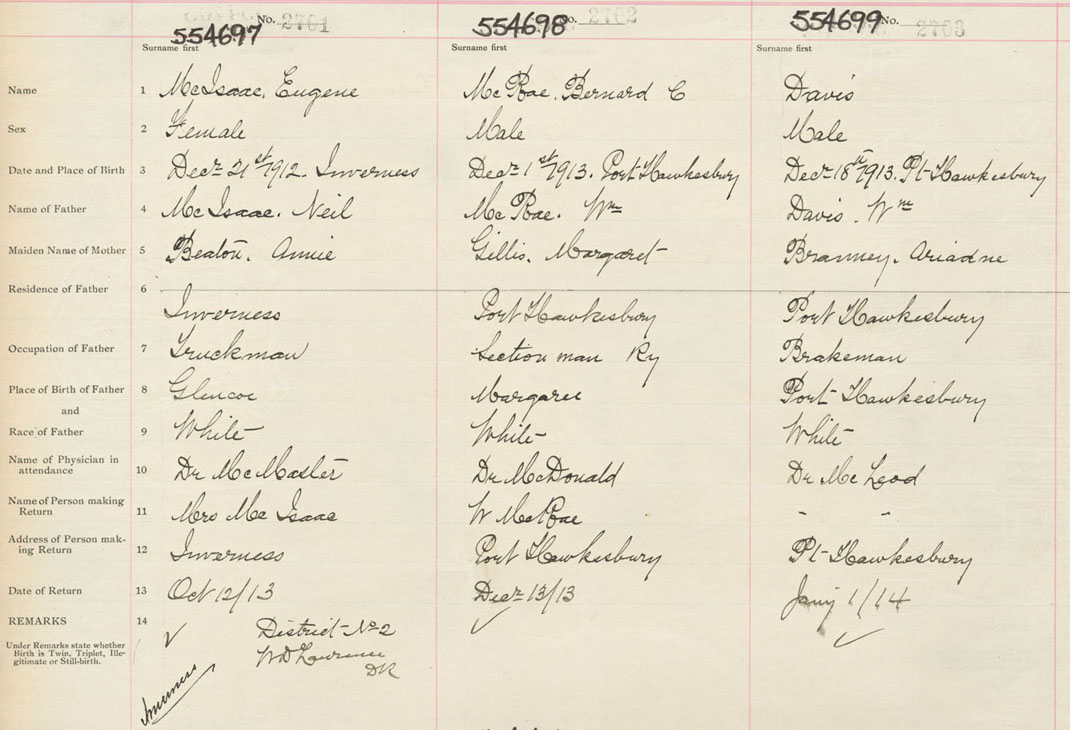 554697 No. 2701 554698 No. 2702 554699 No. 2703
Surname first Surname first Surname first
Name 1 McIsaac, Eugene McRae, Bernard C Davis
Sex 2 Female Male Male
Date and Place of Birth 3 Decr 21st 1912. Inverness Decr 1st 1913. Port Hawkesbury Decr 18th 1913. Pt Hawkesbury
Name of Father 4 McIsaac. Neil McRae. Wm Davis. Wm
Maiden Name of Mother 5 Beaton. Annie Gillis. Margaret Branney. Ariadne
Residence of Father 6
Inverness Port Hawkesbury Port Hawkesbury
Occupation of Father 7 Truckman Section man Ry Brakeman
Place of Birth of Father 8 Glencoe Margaree Port Hawkesbury
and
Race of Father 9 White White White
Name of Physician in
attendance 10 Dr McMaster Dr McDonald Dr McLeod
Name of Person making
Return 11 Mrs McIsaac W McRae " "
Address of Person mak-
ing Return 12 Inverness Port Hawkesbury Pt Hawkesbury
Date of Return 13 Oct 12/13 Decr 13/13 Jany 1/14
REMARKS 14 District No 2
Under Remarks state whether
Birth is Twin, Triplet, Ille-
gitimate or Still-birth.
W D Lawrence
DR
Inverness